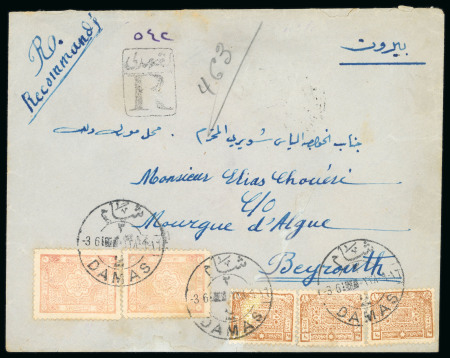 R.
Recommandé
٥٤٢
R
463
بيروت
جناب الخواجه الياس شويري المحترم
Monsieur Elias Chouéri
C/o
Mourgue d'Algue
Beyrouth
شام
DAMAS
شام
DAMAS
شام
DAMAS